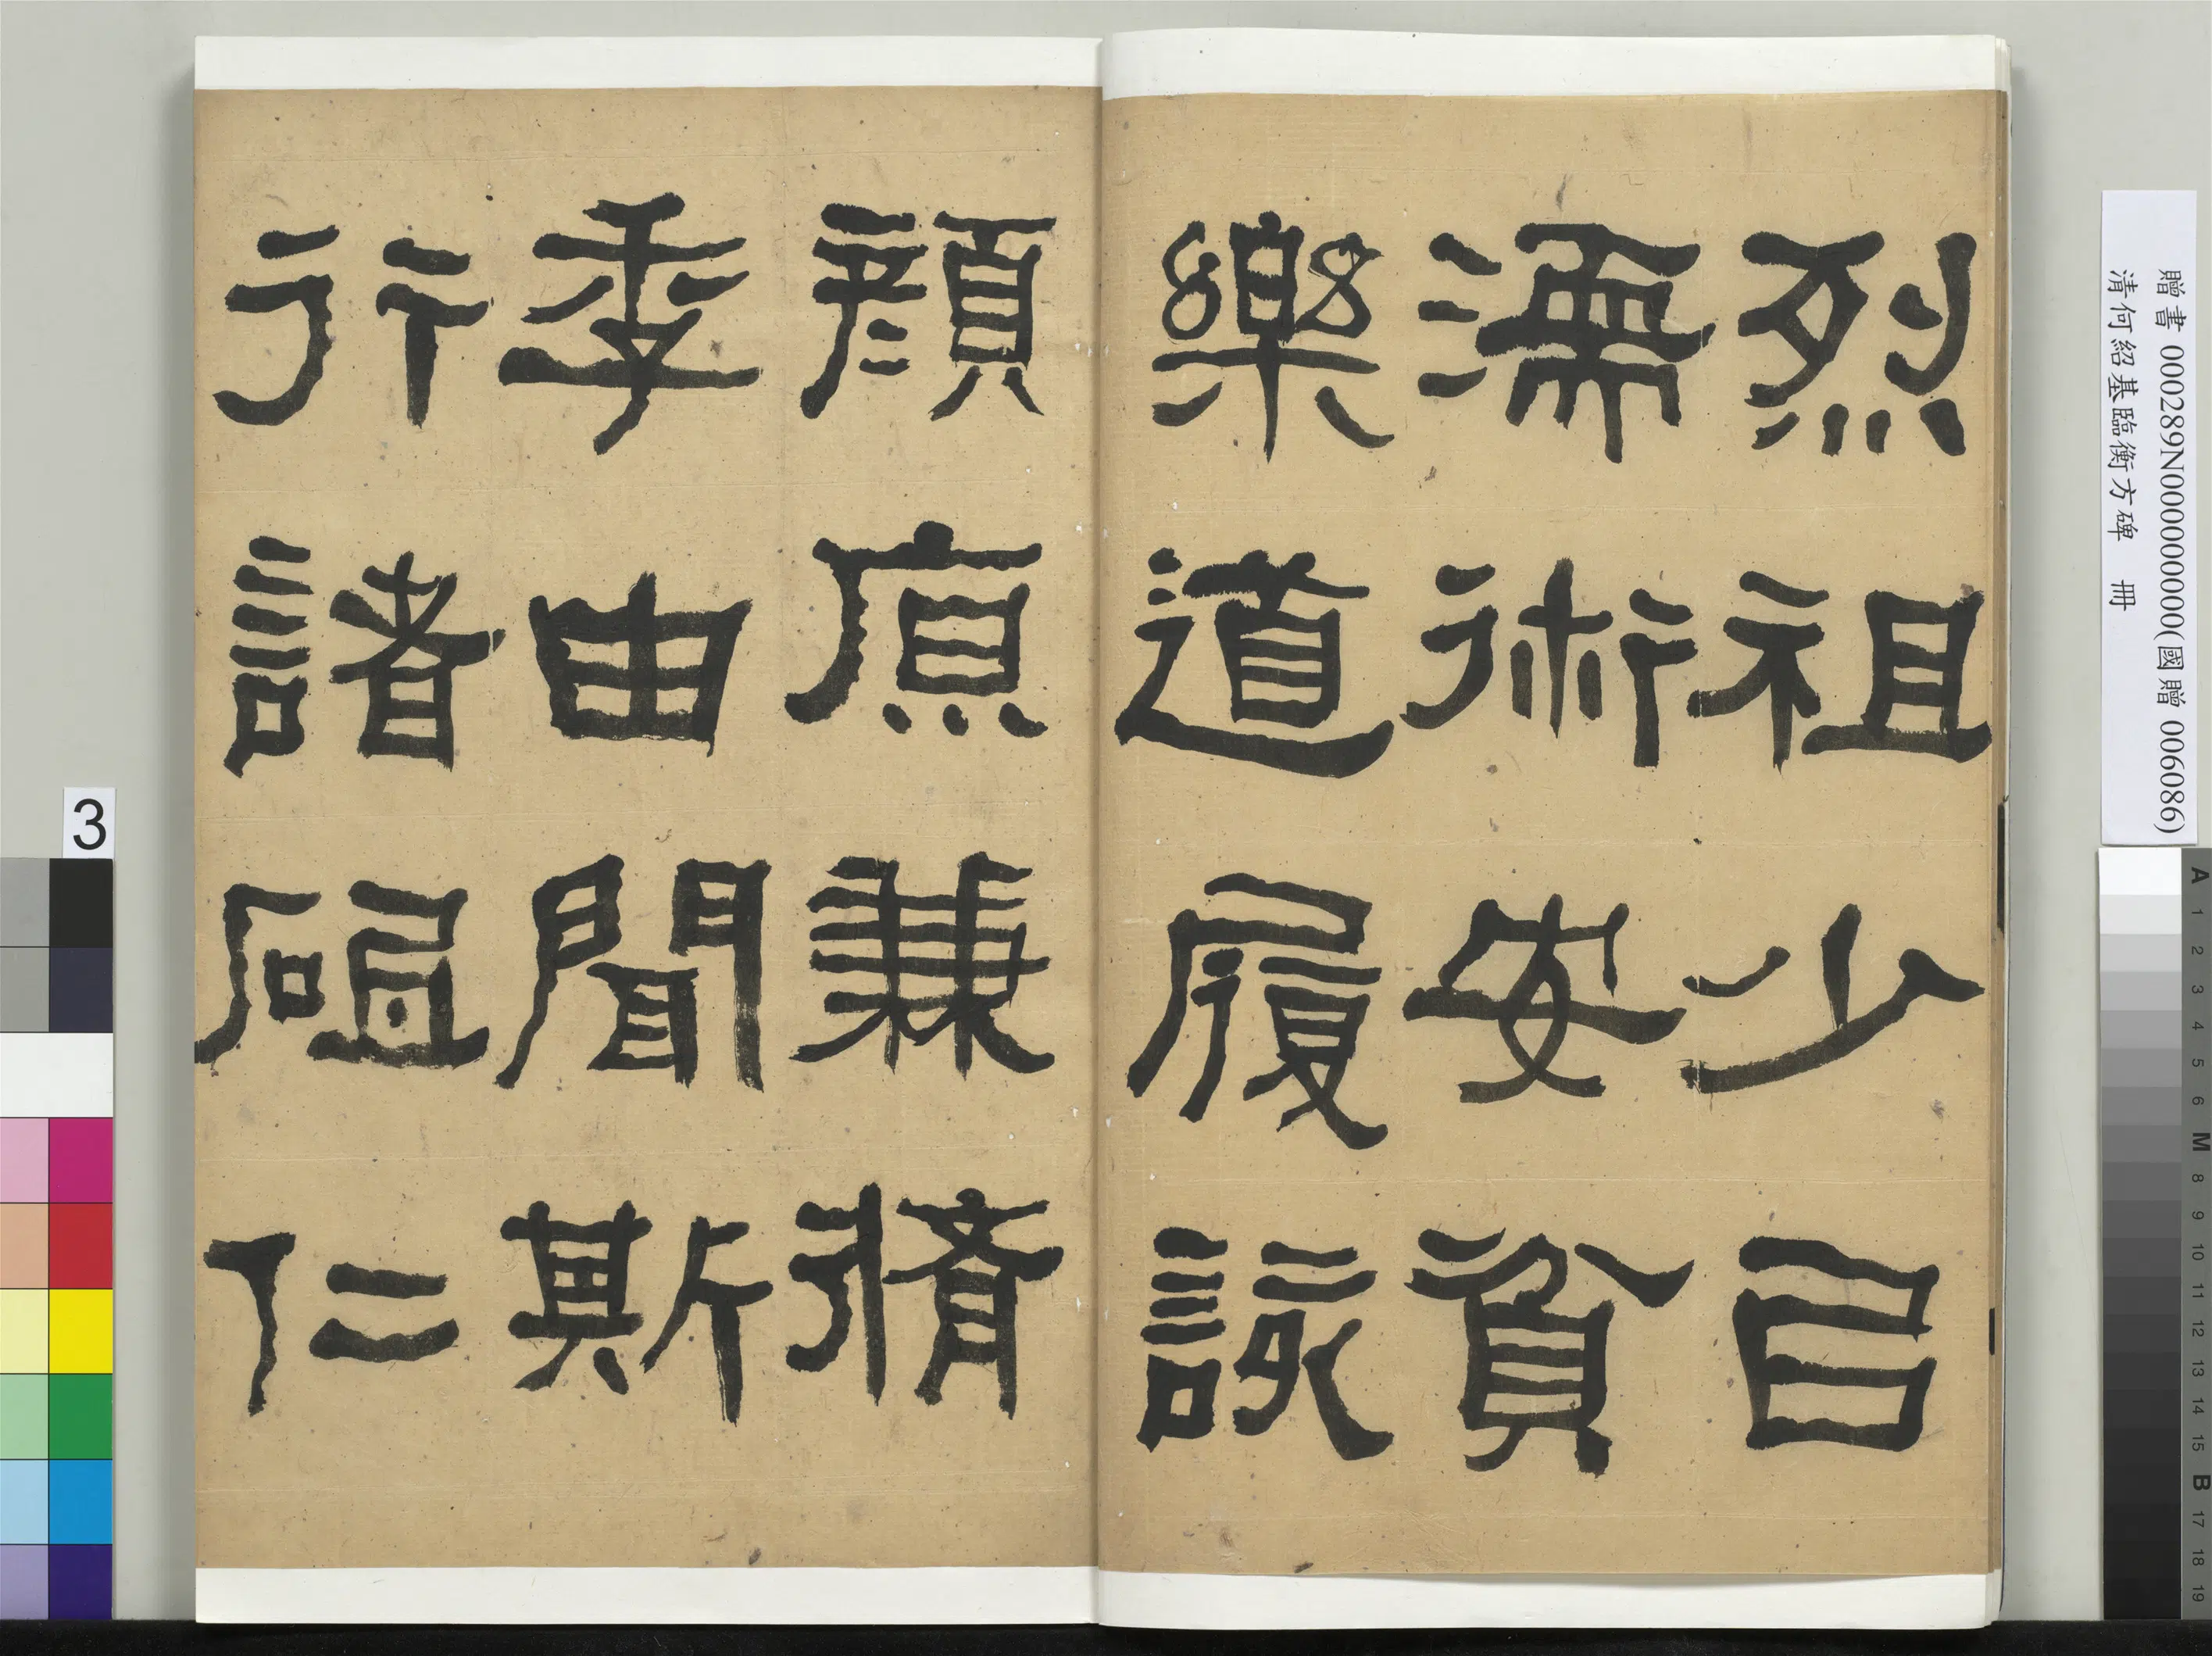 烈祖少㠯
濡術安貧
樂道履該
顏原兼脩
季由聞斯
行諸砥仁
贈書 000289N000000000(國贈 006086)
清何紹基臨衡方碑 冊
3
A 1 2 3 4 5 6 M 8 9 10 11 12 13 14 15 B 17 18 19